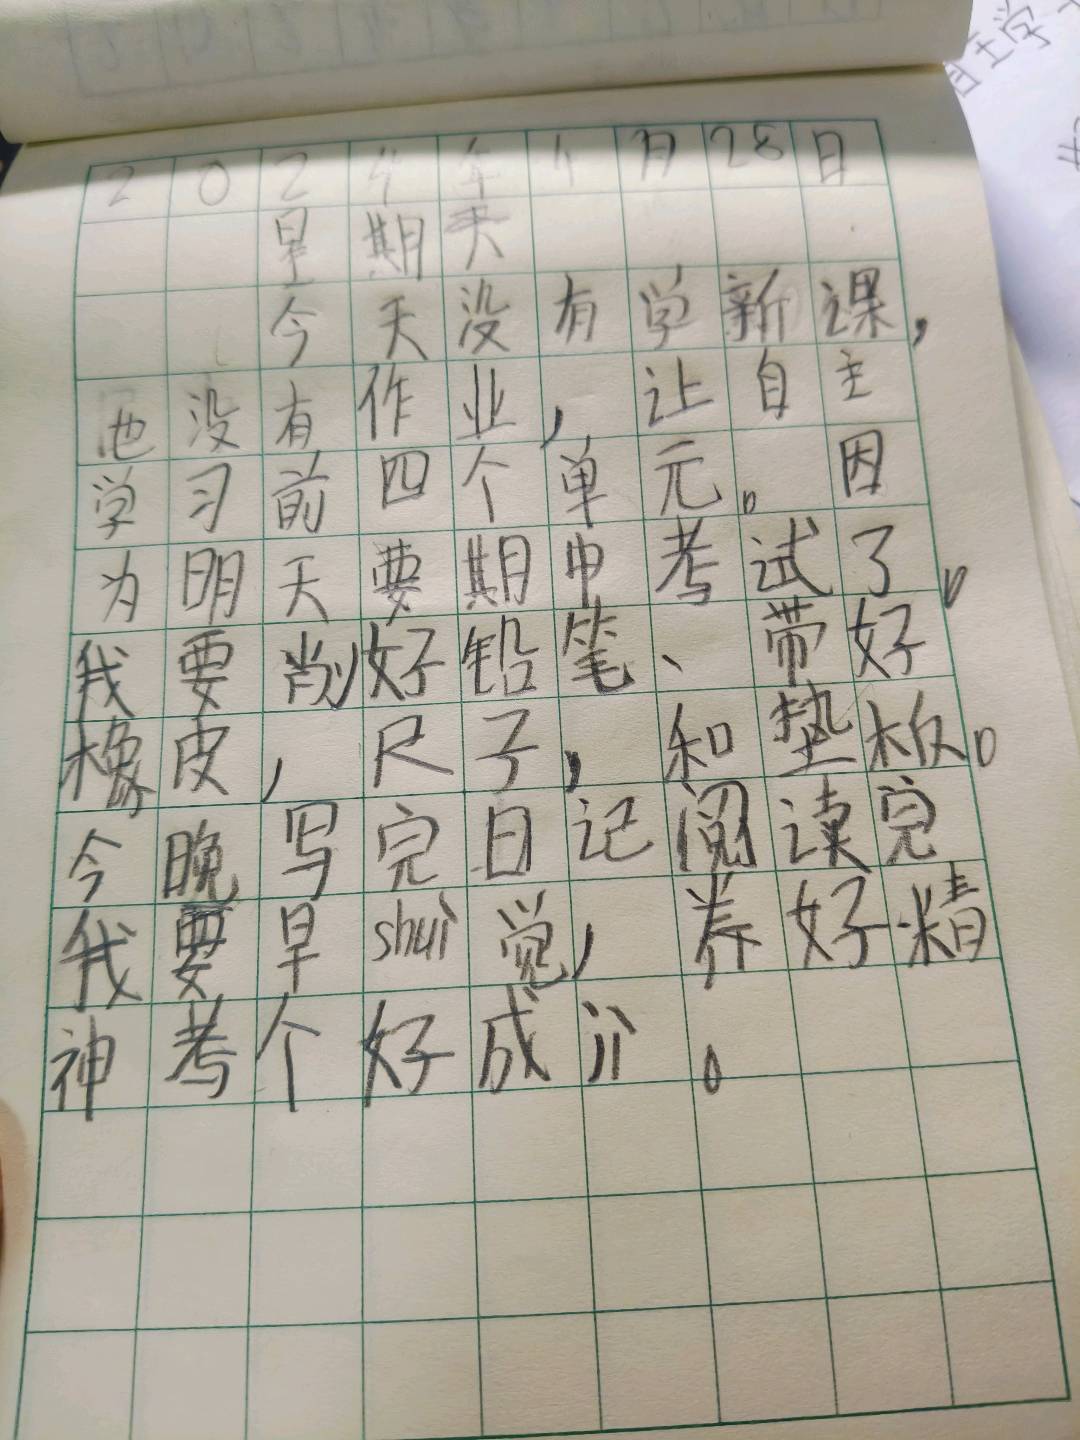 2024年4月28日
星期天
今天没有学新课,
也没有作业,让自主
学习前四个单元。因
为明天要期中考试了。
我要削好铅笔、带好
橡皮,尺子,和垫板。
今晚写完日记阅读完
我要早shuì觉,养好精
神考个好成
。
自主学